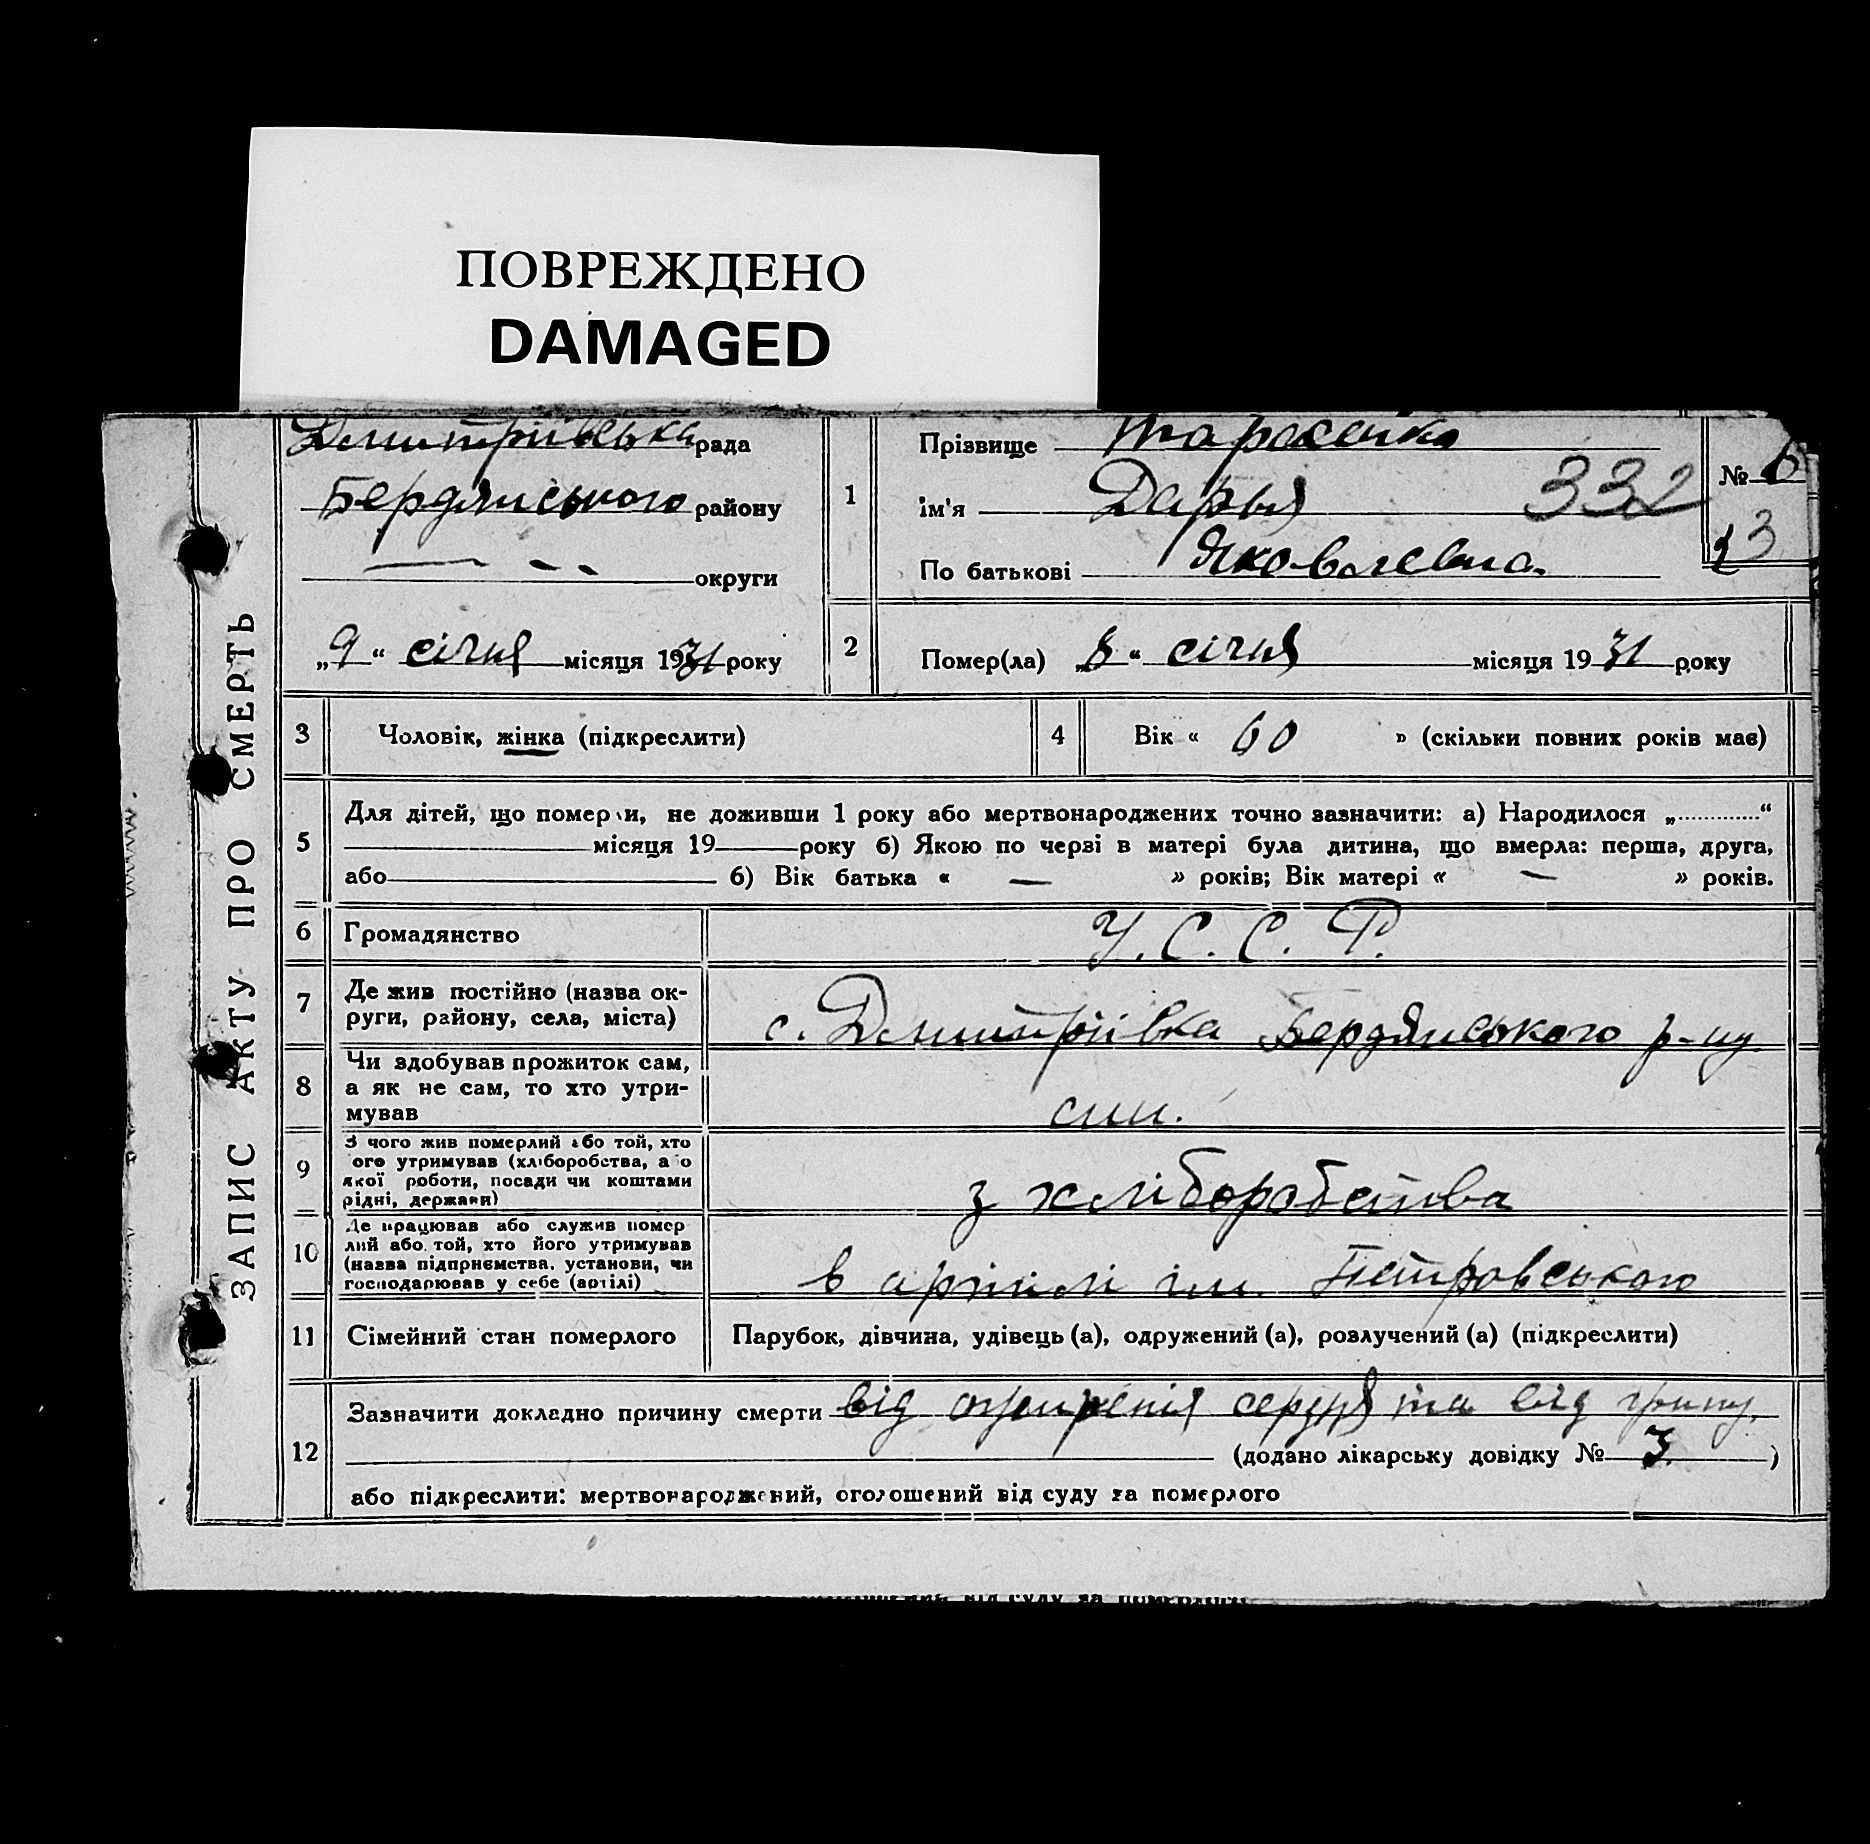 ПОВРЕЖДЕНО
DAMAGED
ЗАПИС АКТУ ПРО СМЕРТЬ
Дмитріївська рада
Бердянського району
— - - округи
„9“ січня місяця 1931 року
1
Прізвище Тарасенко
ім'я Дарья 332
По батькові Яковлевна.
№ 6
3
2
Помер(ла) „8“ січня місяця 1931 року
3 Чоловік, жінка (підкреслити)
4 Вік « 60 » (скільки повних років має)
5
Для дітей, що помер и, не доживши 1 року або мертвонароджених точно зазначити: а) Народилося „.............“
місяця 19 року б) Якою по черзі в матері була дитина, що вмерла: перша, друга,
або б) Вік батька « — » років; Вік матері « — » років.
6 Громадянство У. С. С. Р.
7
Де жив постійно (назва ок-
руги, району, села, міста)
с. Дмитріївка Бердянського р-ну
8
Чи здобував прожиток сам,
а як не сам, то хто утри-
мував
син.
9
З чого жив померлий або той, хто
ого утримував (хліборобства, а о
якої роботи, посади чи коштами
рідні, держави)
з хліборобства
10
Де працював або служив помер
лий або той, хто його утримував
(назва підприємства, установи, чи
господарював у себе (артілі)
в артілі ім. Петровського
11 Сімейний стан померлого Парубок, дівчина, удівець (а), одружений (а), розлучений (а) (підкреслити)
12
Зазначити докладно причину смерти від ожиренія серця та від грипу.
(додано лікарську довідку № 3. )
або підкреслити: мертвонароджений, оголошений від суду за померлого
від суду за померлого